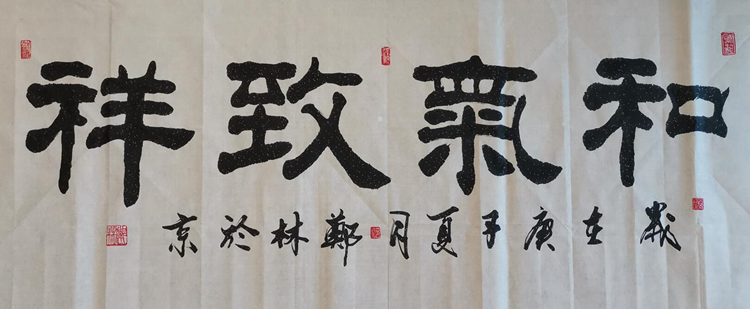 和氣致祥
歲在庚子夏月鄭林於京